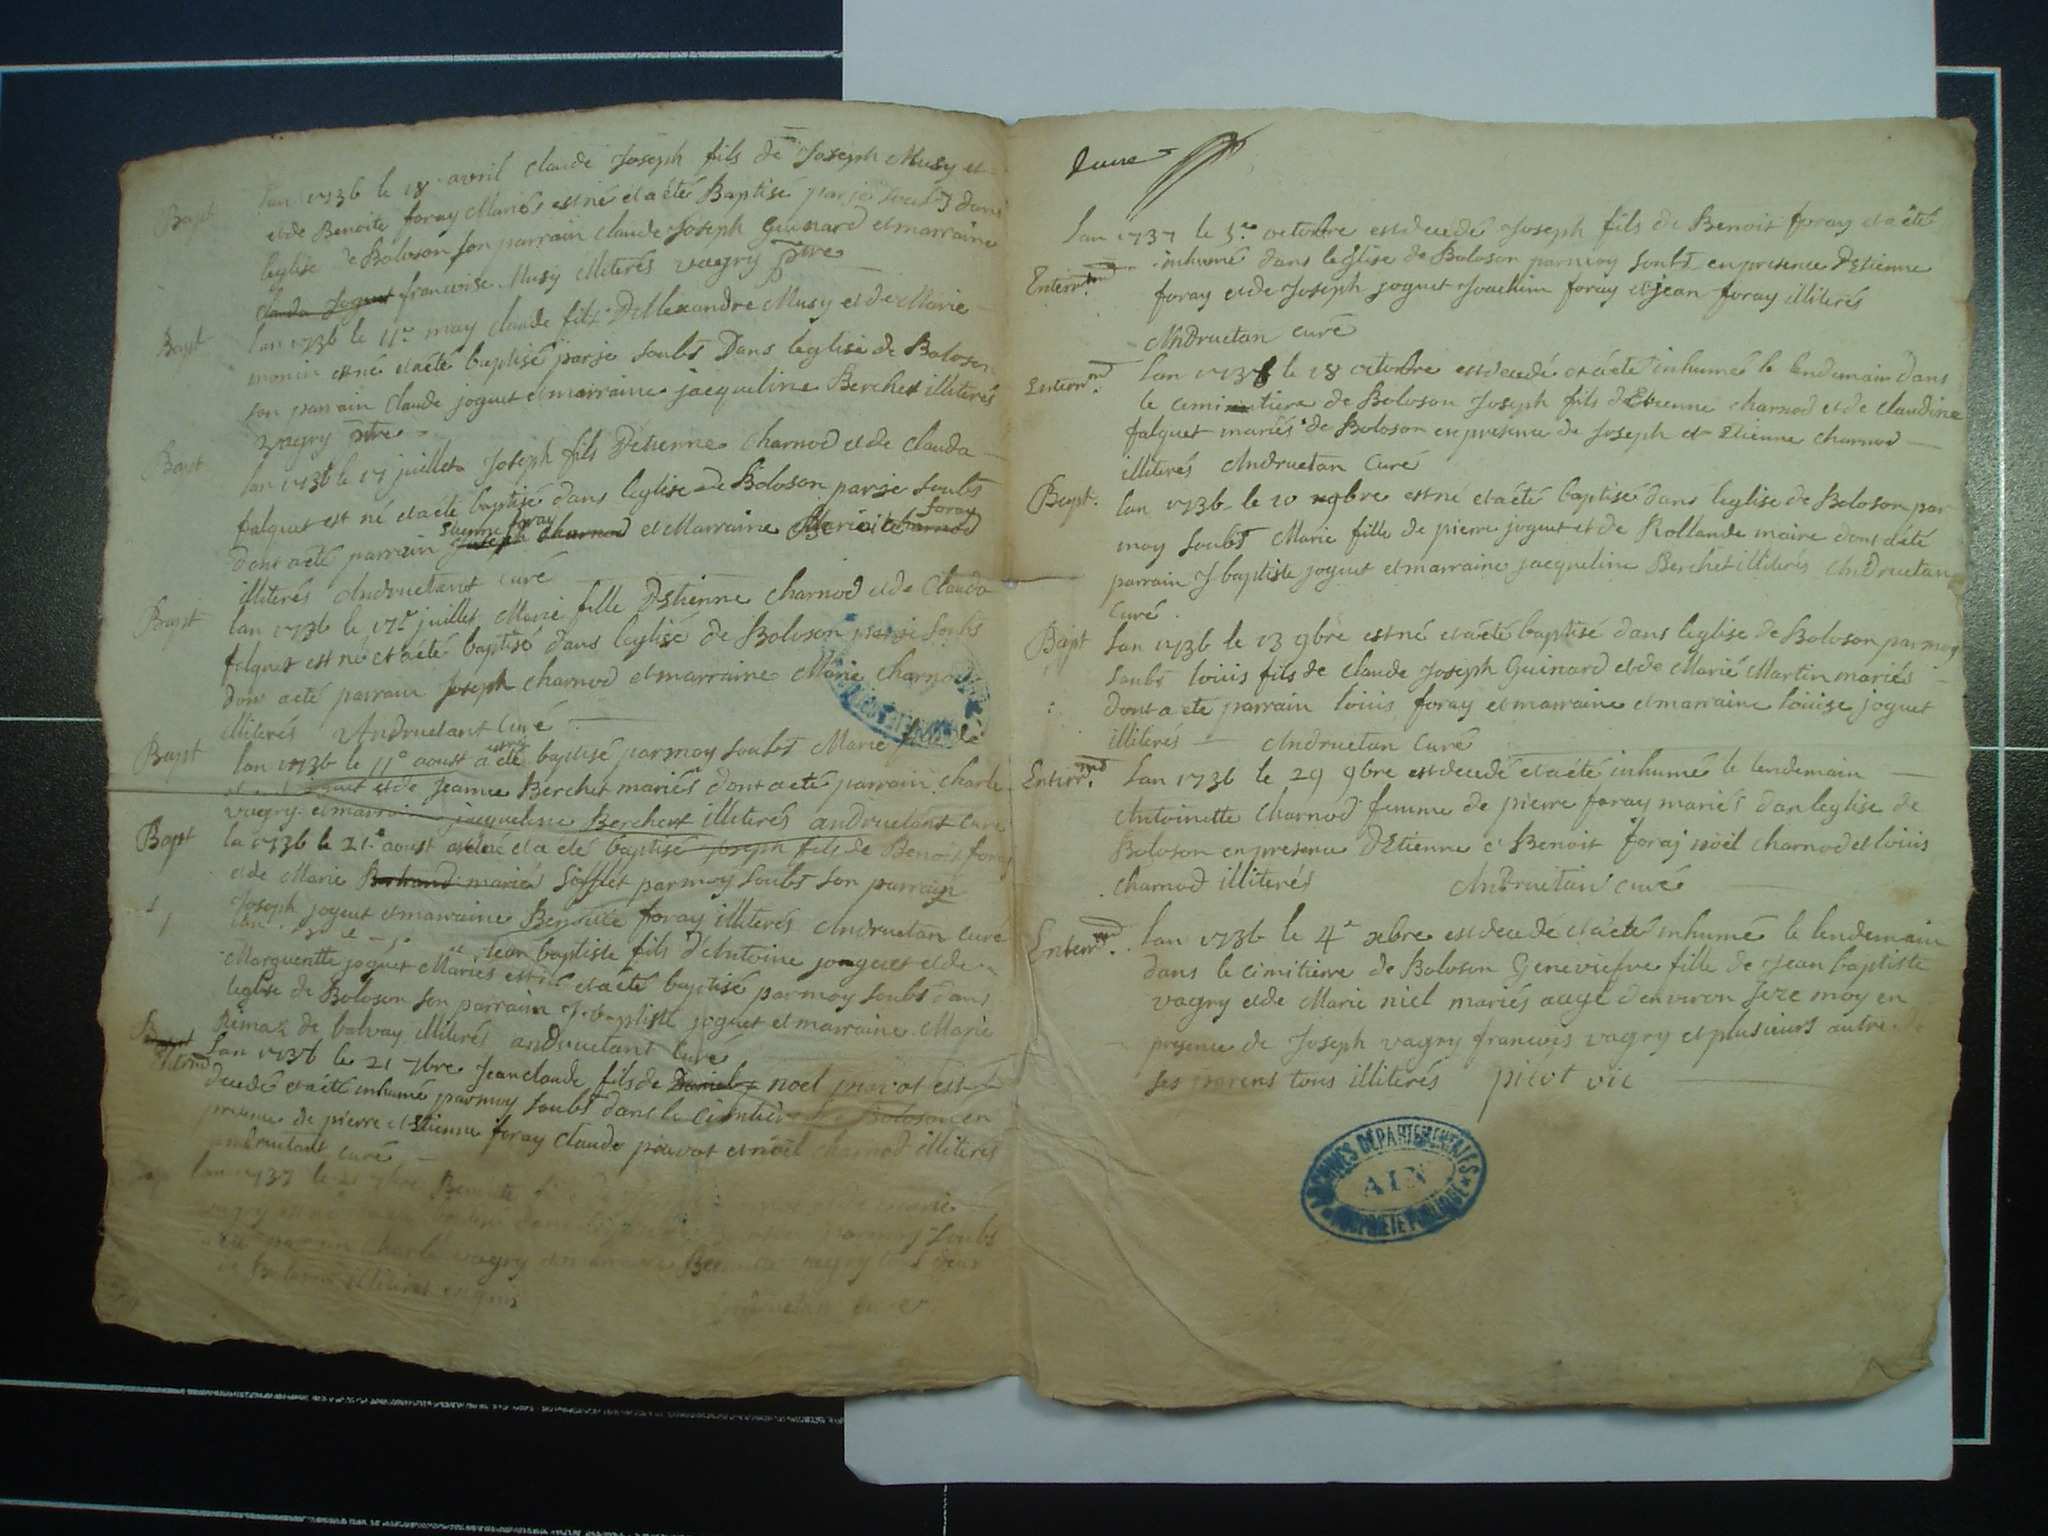 Bapt lan 1736 le 18 avril claude Joseph fils de Joseph Musy et
et de Benoite foray Mariés est né et a été Baptisé par je soubs dans
leglise de Boloson son parrain claude Joseph Guinard et marraine
clauda Joguet francoise Musy illiterés vagry ptre
Bapt lan 1736 le 11e may claude fils D'Alexandre Musy et de Marie
monin est né et a été baptisé par je soubs Dans leglise de Boloson
son parrain Claude joguet et marraine jacqueline Berchet illiterés
vagry ptre
Bapt lan 1736 le 17 juillet Joseph fils D'etienne Charnod et de clauda
falquet est né et a été baptisé dans leglise de Boloson par je soubs
dont a été parrain Etienne foray joseph charnod et Marraine Benoite foray charnod
illiterés Andructant curé
Bapt lan 1736 le 17e juillet Marie fille D'Etienne Charnod et de Clauda
falquet est né et a été baptisé dans leglise de Boloson par je soubs
dont a été parrain Joseph charnod et marraine Marie charnod
illiterés Andructant Curé
Bapt lan 1736 le 11e aoust a été baptisé par moy soubs Marie
joguet et de Jeanne Berchet mariés dont a eté parrain charle
vagry et marraine jacqueline Berchet illiterés andructant curé
Bapt la 1736 le 21e aoust est né et a eté baptisé joseph fils de Benoit foray
et de Marie Bertrand mariés Sifflet par moy soubs son parrain
Joseph joguet et marraine Benoite foray illiterés Andructan curé
lan Jean baptiste fils d'Antoine jongeret et de
Marguerite joguet Mariés est né et a été baptisé par moy soubs dans
leglise de Boloson son parrain J. baptiste joguet et marraine Marie
Rimaz de balvay illiterés andructant Curé
Bapt lan 1736 le 21 7bre Jean claude fils de Daniel noel pravot est
decedé et a été inhumé par moy soubs dans le cimitiere de Boloson en
presence de pierre et Etienne foray claude pravot et noël charnod illiterés
andructant curé
lan 1737 le 21 7bre Benoite
vagry par moy soubs
parrain Charle vagry et marraine Benoite vagry tous deux
de Boloson illiterés
Andructan curé
deux
Enterrmnd lan 1737 le 3e octobre est decedé Joseph fils de Benoit foray et a été
inhumé dans leglise de Boloson par moy soubs en presence D'Etienne
foray et de Joseph joguet Joachim foray et jean foray illiterés
Andructan curé
Enterrmnd lan 1736 le 18 octobre est decedé et a été inhumé le lendemain dans
le cimintiere de Boloson Joseph fils d'Etienne charnod et de claudine
falquet mariés de Boloson en presence de Joseph et Etienne charnod
illiterés Andructan Curé
Bapt. lan 1736 le 10 9bre est né et a été baptisé dans leglise de Boloson par
moy soubs Marie fille de pierre joguet et de Rollande maire dont a été
parrain J baptiste joguet et marraine jacqueline Berchet illiterés Andructan
curé.
Bapt lan 1736 le 13 9bre est né et a été baptisé dans leglise de Boloson par moy
soubs loüis fils de claude Joseph Guinard et de Marie Martin mariés
dont a eté parrain loüis foray et marraine et marraine loüise joguet
illiterés Andructan Curé
Enterrmnd lan 1736 le 29 9bre est decedé et a été inhumé le lendemain
Antoinette Charnod femme de pierre foray mariés dan leglise de
Boloson en presence d'Etienne e Benoit foraj noël charnod et loüis
charnod illiterés Andructan curé
Enterrmnd lan 1736 le 4e xbre est decedé et a été inhumé le lendemain
dans le cimitierre de Boloson Geneviefve fille de Jean baptiste
vagry et de Marie niel mariés augé d'environ seze moy en
presence de Joseph vagry françois vagry et plusieurs autre de
ses parens tous illiterés picot vic
ARCHIVES DÉPARTEMENTALES
AIN
PROPRIÉTÉ PUBLIQUE